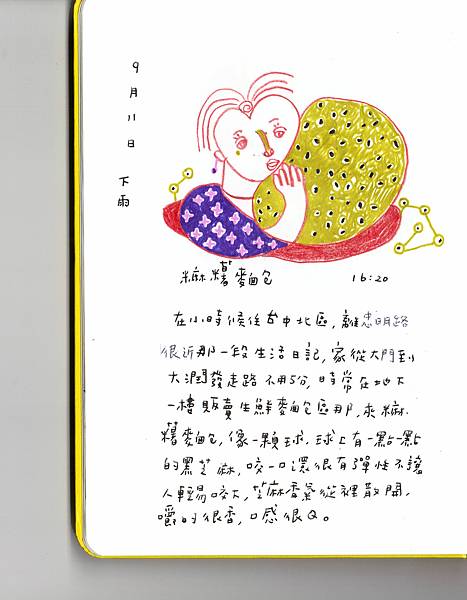 9月11日
下雨
麻糬麵包
16:20
在小時候住台中北區,離忠明路
很近那一段生活日記,家從大門到
大潤發走路不用5分,時常在地下
一樓販賣生鮮麵包區那,求麻
糬麵包,像一顆球,球上有一點一點
的黑芝麻,咬一口還很有彈性不讓
人輕易咬下,芝麻香氣從裡散開,
嚼的很香,口感很Q。